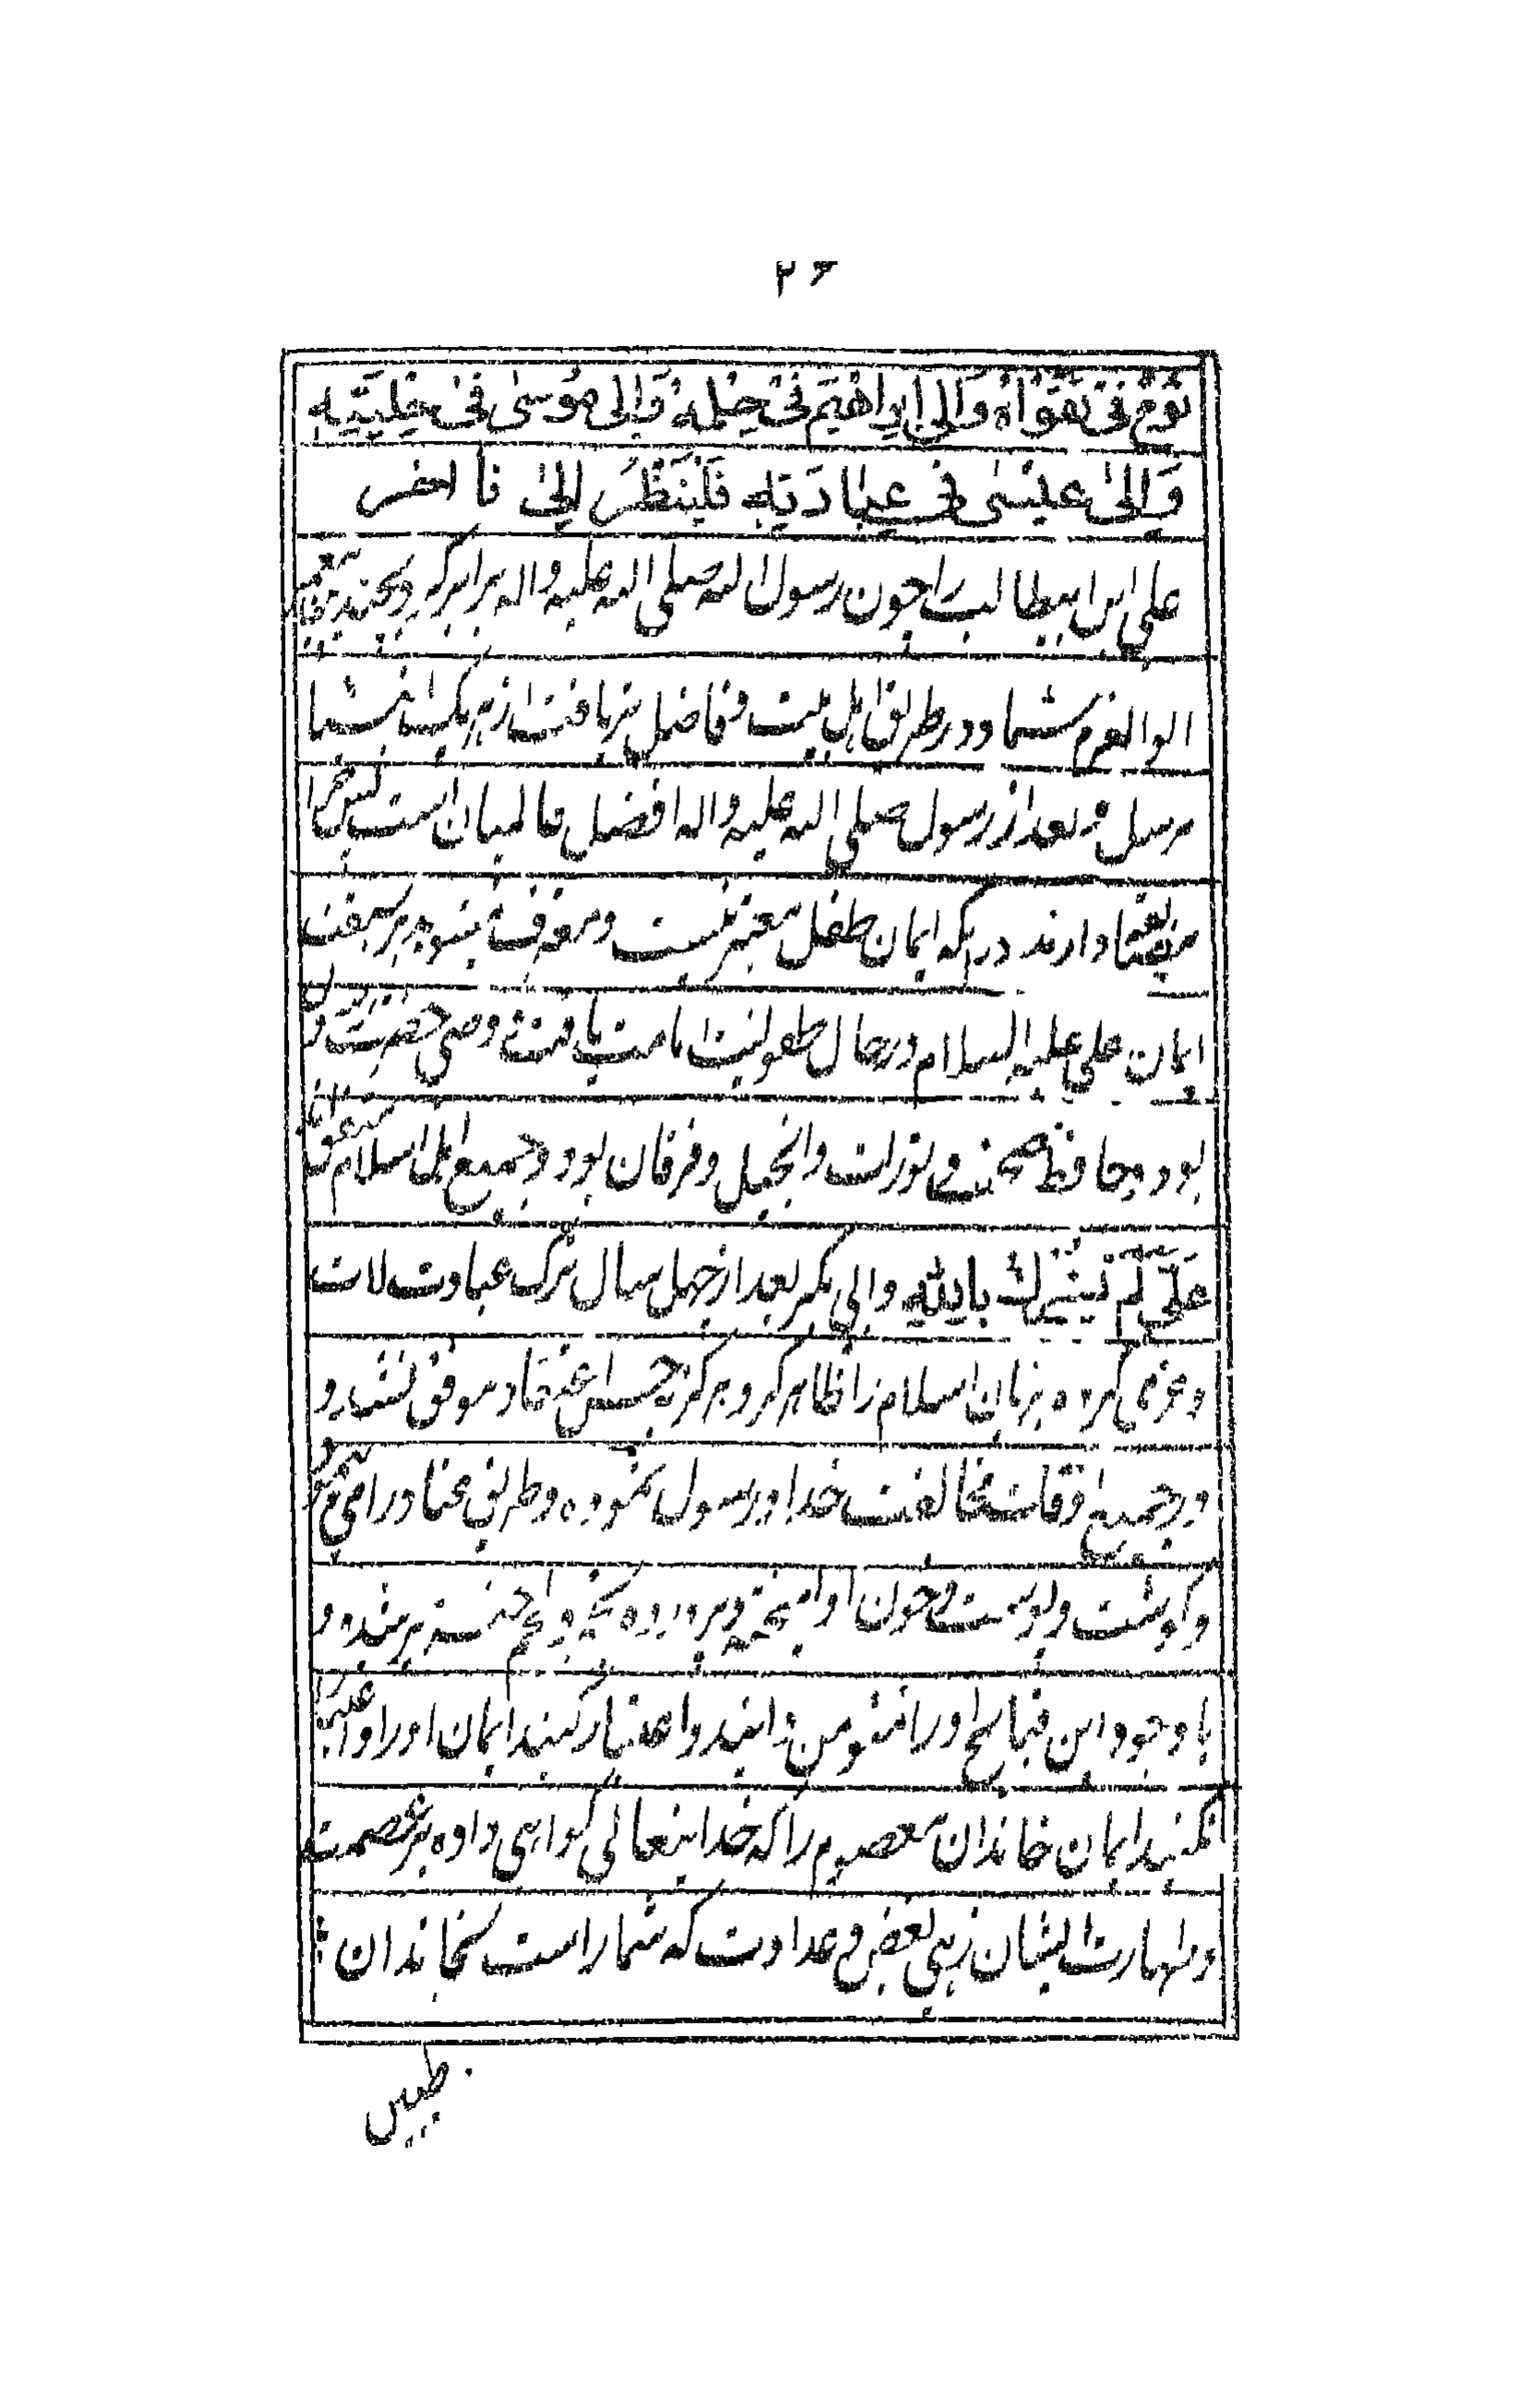 ۲۶
نوح فی تقواه وَالی ابراهیم فی حلمه وَالی موسی فی هیبته
وَالی عیسی فی عبادته فلینظر الی نا احضر
علی ابن ابیطالب را چون رسول الله صلی الله علیه و اله برابر کرد بچند پیغمبر
الوالعزم شما و در طریق اهل بیت و فاضل تر یافت از هر یک انبیا
مرسل و بعد از رسول صلی الله علیه و اله افضل عالمیان است پس چرا
دارند در یکه ایمان طفل معتبر نیست و معترف بر سبقت
ایمان علی علیه السلام در حال طفولیت امامت یافت و وصی حضرت رسول
بود و حافظ صحف و تورات و انجیل و فرقان بود و جمیع اهل اسلام متفق اند
عَلیٌّ لَم یُشرِک بِاللهِ و ابی بکر بعد از چهل سال ترک عبادت لات
و عزی کرده بزبان اسلام را ظاهر کرد هرگز بحسن اعتقاد موفق نشد و
در جمیع اوقات مخالفت خدا و رسول نموده و طریق عناد را می
و گوشت و پوست و خون او پرورده خمر و لحم خنزیر شده و
با وجود این قبایح او را مومن دانید و اعتبار کنید ایمان او را و اعتبار
نکنید ایمان خاندان معصوم را که خدایتعالی گواهی داده بر عصمت
و طهارت ایشان زهی بغض و عداوت که شما راست بخاندان
طیبین